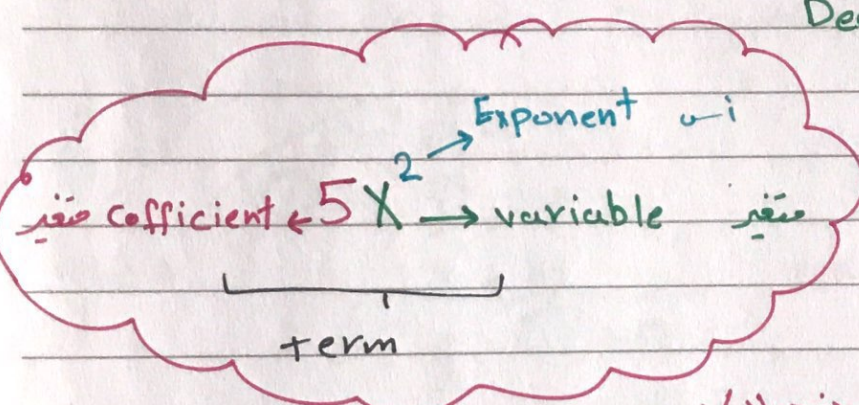 Exponent اس
متغير cofficient ← 5X² → variable متغير
term